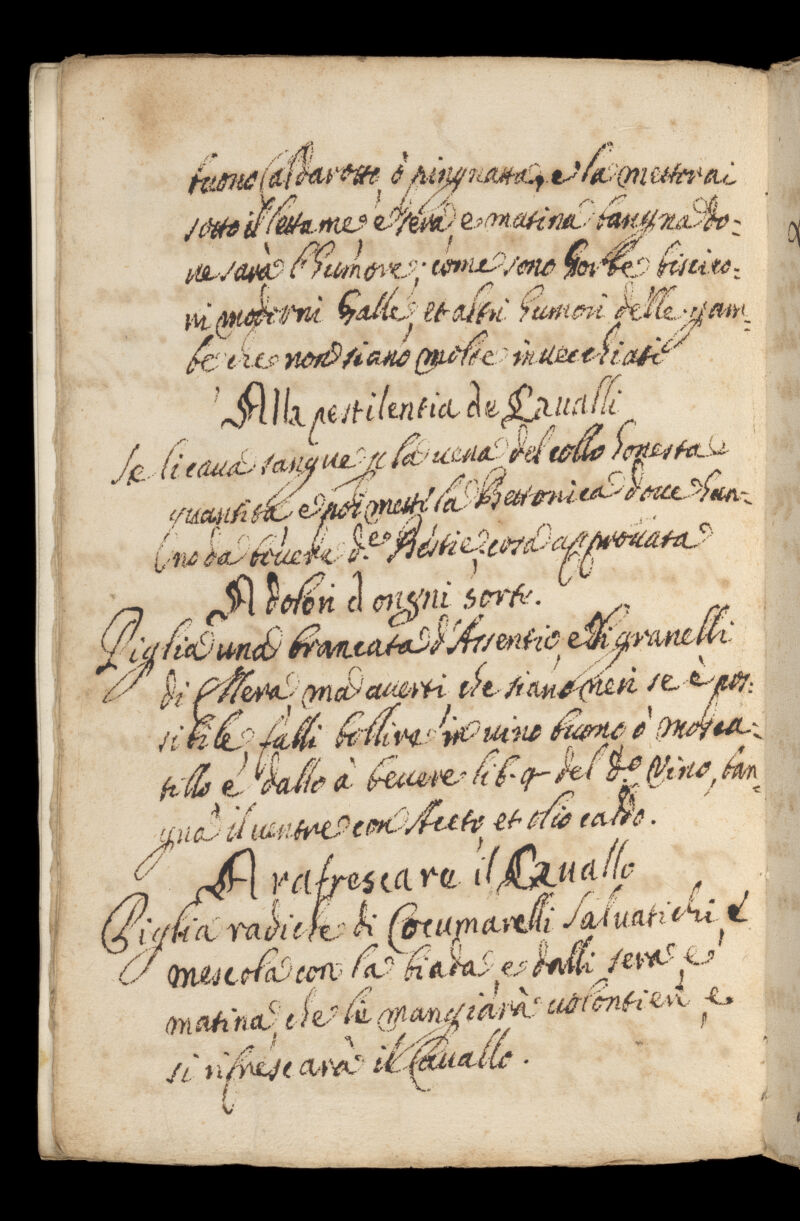 buono Caldarotto ò pingnatta, e la mettorai
sotto il lettame, e sera e matina bangna do-
ue sarà l'humore; come sono Gorbe bisciro-
ni moderni Galle, et altri humori delle gam-
be che non siano molte inuecchiati
Alla pestilentia de Caualli
Se li caua sangue p la uena del collo honesta
quantità, e poi metti la Bettonica doue han-
no da beuere d.e Bestie, cosa approuata
A dolori d ongni sorte.
Piglia una brancata d'Assentio, e granelli
di Ellera ma auerti che siano neri se è pos-
sibile, falli bollire in uino buono ò mosca-
tillo e dallo à beuere lib. del d.o Vino, ban-
gna il uentre con Aceto, et olio caldo.
A rafrescare il Cauallo
Piglia radiche di Cocumarelli Saluatichi, &
mescola con la biada, e dalli sera e
matina, che le mangiarà uolontieri, e
si rifrescarà il Cauallo.